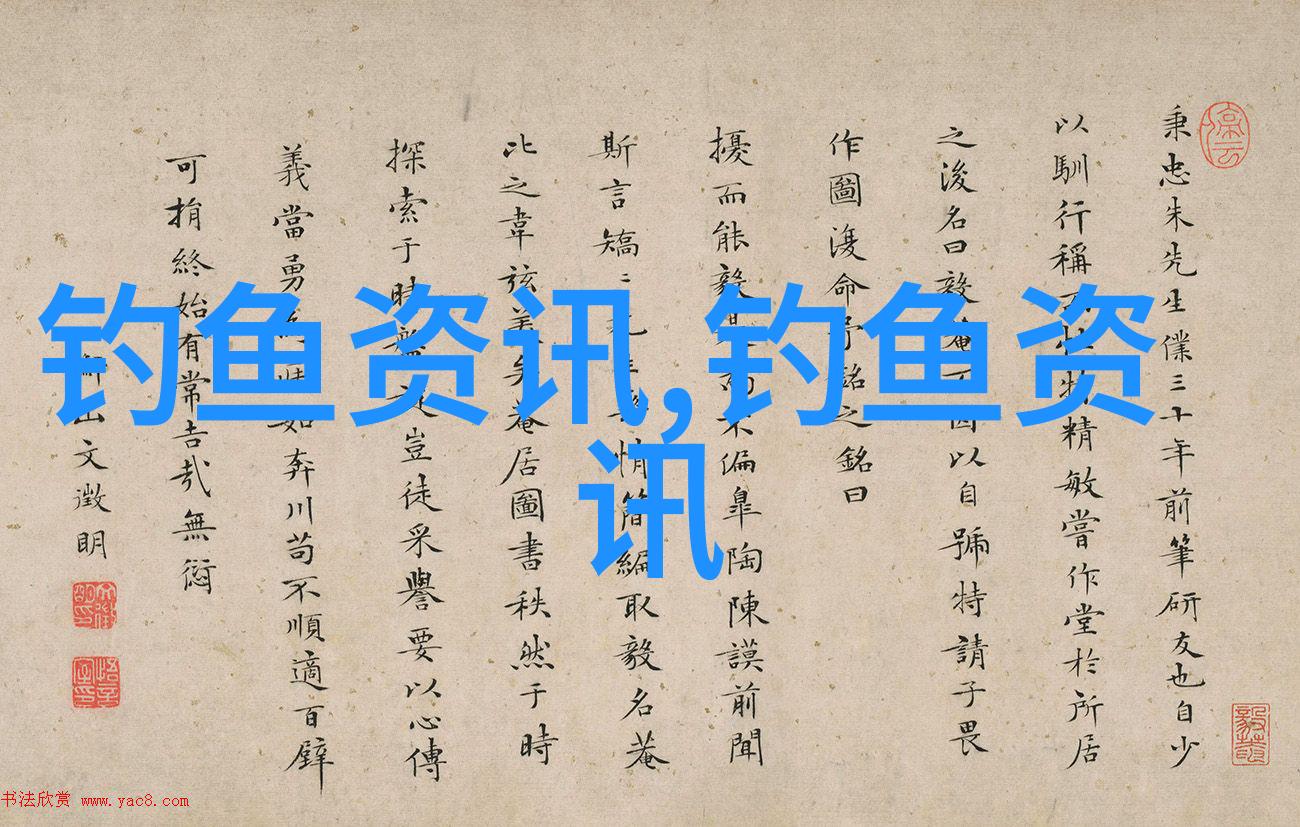 秉忠朱先生僕三十年前筆研友也自少
以馴行稱而性特精敏嘗作堂於所居
之後名曰毅菴不因以自號特請子畏
作圖復命予銘之銘曰
擾而能毅是不偏皐陶陳謨前聞
斯言矯情簡編取毅名菴
比之韋弦美矣菴居圖書秩然于時
探索于時豈徒采譽要以心傳
義當勇如奔川苟不順適百
可㨈終始有常吉哉無愆
山文徵明
钓鱼资讯,钓鱼资
讯
书法欣赏 www.yac8.com